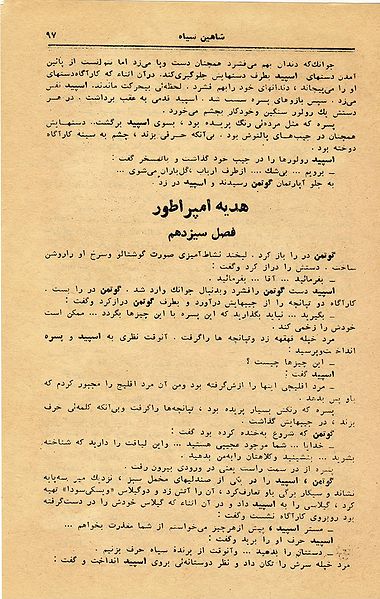 شاهین سیاه
۹۷
جوانك که دندان بهم می‌فشرد همچنان دست وپا میزد اما نتوانست از پائین
آمدن دستهای اسپید بطرف دستهایش جلوگیری‌کند. درآن اثناء که کارآگاه دستهای
او را می‌پیچاند ، دندانهای خود را بهم فشرد . لحظه‌ئی بیحرکت ماندند. اسپید نفس
می‌زد . سپس بازوهای پسره سست شد . اسپید قدمی به عقب برداشت . در هر
دستش یك رولور سنگین وخودکار بچشم می‌خورد .
پسره که مثل مرده‌ئی رنگ پریده بود ، بسوی اسپید برگشت. دستهایش
همچنان در جیب‌های پالتویش بود . بی‌آنکه حرفی بزند ، چشم به سینه کارآگاه
دوخته بود .
اسپید رولورها را در جیب خود گذاشت و با تمسخر گفت :
ــ برویم ... بی‌شك .... ازطرف ارباب ، گل‌باران می‌شوی ...
به جلو آپارتمان گوتمن رسیدند و اسپید در زد .
هدیه امپراطور
فصل سیزدهم
گوتمن در را باز کرد . لبخند نشاط‌آمیزی صورت گوشتالو وسرخ او راروشن
ساخت . دستش را دراز کرد وگفت :
ــ بفرمائید ... آقا ... بفرمائید .
اسپید دست گوتمن رافشرد وبدنبال جوانك وارد شد . گوتمن در را بست .
کارآگاه دو تپانچه را از جیبهایش درآورد و بطرف گوتمن درازکرد وگفت :
ــ بگیرید ... نباید بگذارید که این پسره با این چیزها بگردد ... ممکن است
خودش را زخمی کند .
مرد خپله قهقهه زد وتپانچه ها راگرفت . آنوقت نظری به اسپید و پسره
انداخت وپرسید :
ــ این چیزها چیست ؟
اسپید گفت :
ــ مرد افلیجی اینها را ازش‌گرفته بود ومن آن مرد افلیج را مجبور کردم که
باو پس بدهد .
پسره که رنگش بسیار پریده بود ، تپانچه‌ها راگرفت وبی‌آنکه کلمه‌ئی حرف
بزند ، در جیبهایش گذاشت .
گوتمن که شروع بخنده کرده بود گفت :
ــ خدایا ... شما موجود عجیبی هستید ... واین لیاقت را دارید که شناخته
بشوید ... بنشینید وکلاهتان رابه‌من بدهید .
پسره از در سمت راست یعنی در ورودی بیرون رفت .
گوتمن ، اسپید را در یکی از صندلیهای مخمل سبز ، نزدیك میز سه‌پایه
نشاند و سیگار برگی باو تعارف‌کرد ، آن را آتش زد و دوگیلاس «ویسکی‌سودا» تهیه
کرد ، گیلاسی را به اسپید داد و در آن اثناء که گیلاس خودش را در دست‌گرفته
بود روبروی کارآگاه نشست وگفت :
ــ مستر اسپید ، پیش ازهرچیز می‌خواستم از شما معذرت بخواهم ...
اسپید حرف او را برید وگفت :
ــ دستتان را بدهید ... وآنوقت از پرندهٔ سیاه حرف بزنیم .
مرد خپله سرش را تکان داد و نظر دوستانه‌ئی بروی اسپید انداخت و گفت :